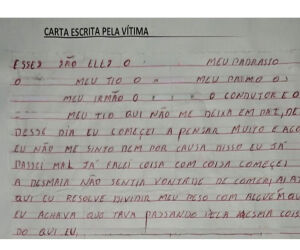 CARTA ESCRITA PELA VÍTIMA
ESSES SÃO ELLES O MEU PADRASSO
O MEU TIO O MEU PRIMO OS
MEU IRMÃO O CONDUTOR E O
MEU TIO QUI NÃO ME DEIXA EM PAZ, DE
DESSE DIA EU COMEÇEI A PENSAR MUITO E AGO
EU NÃO ME SINTO BEM POR CAUSA DISSO EU JÁ
PASSEI MAL JÁ FALEI COISA COM COISA COMEÇEI
A DESMAIA NÃO SENTIA VONTADE DE COMER, ALAI
QUI EU RESOLVE DIVIDIR MEU PESO COM ALGUÉM QUI
EU ACHAVA QUI TAVA PASSANDO PELA MESMA COIS
DO QUI EU.